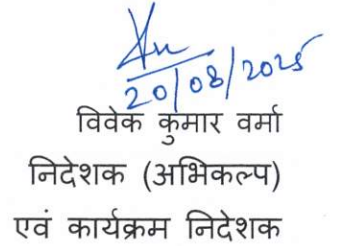 20/08/2025
विवेक कुमार वर्मा
निदेशक (अभिकल्प)
एवं कार्यक्रम निदेशक